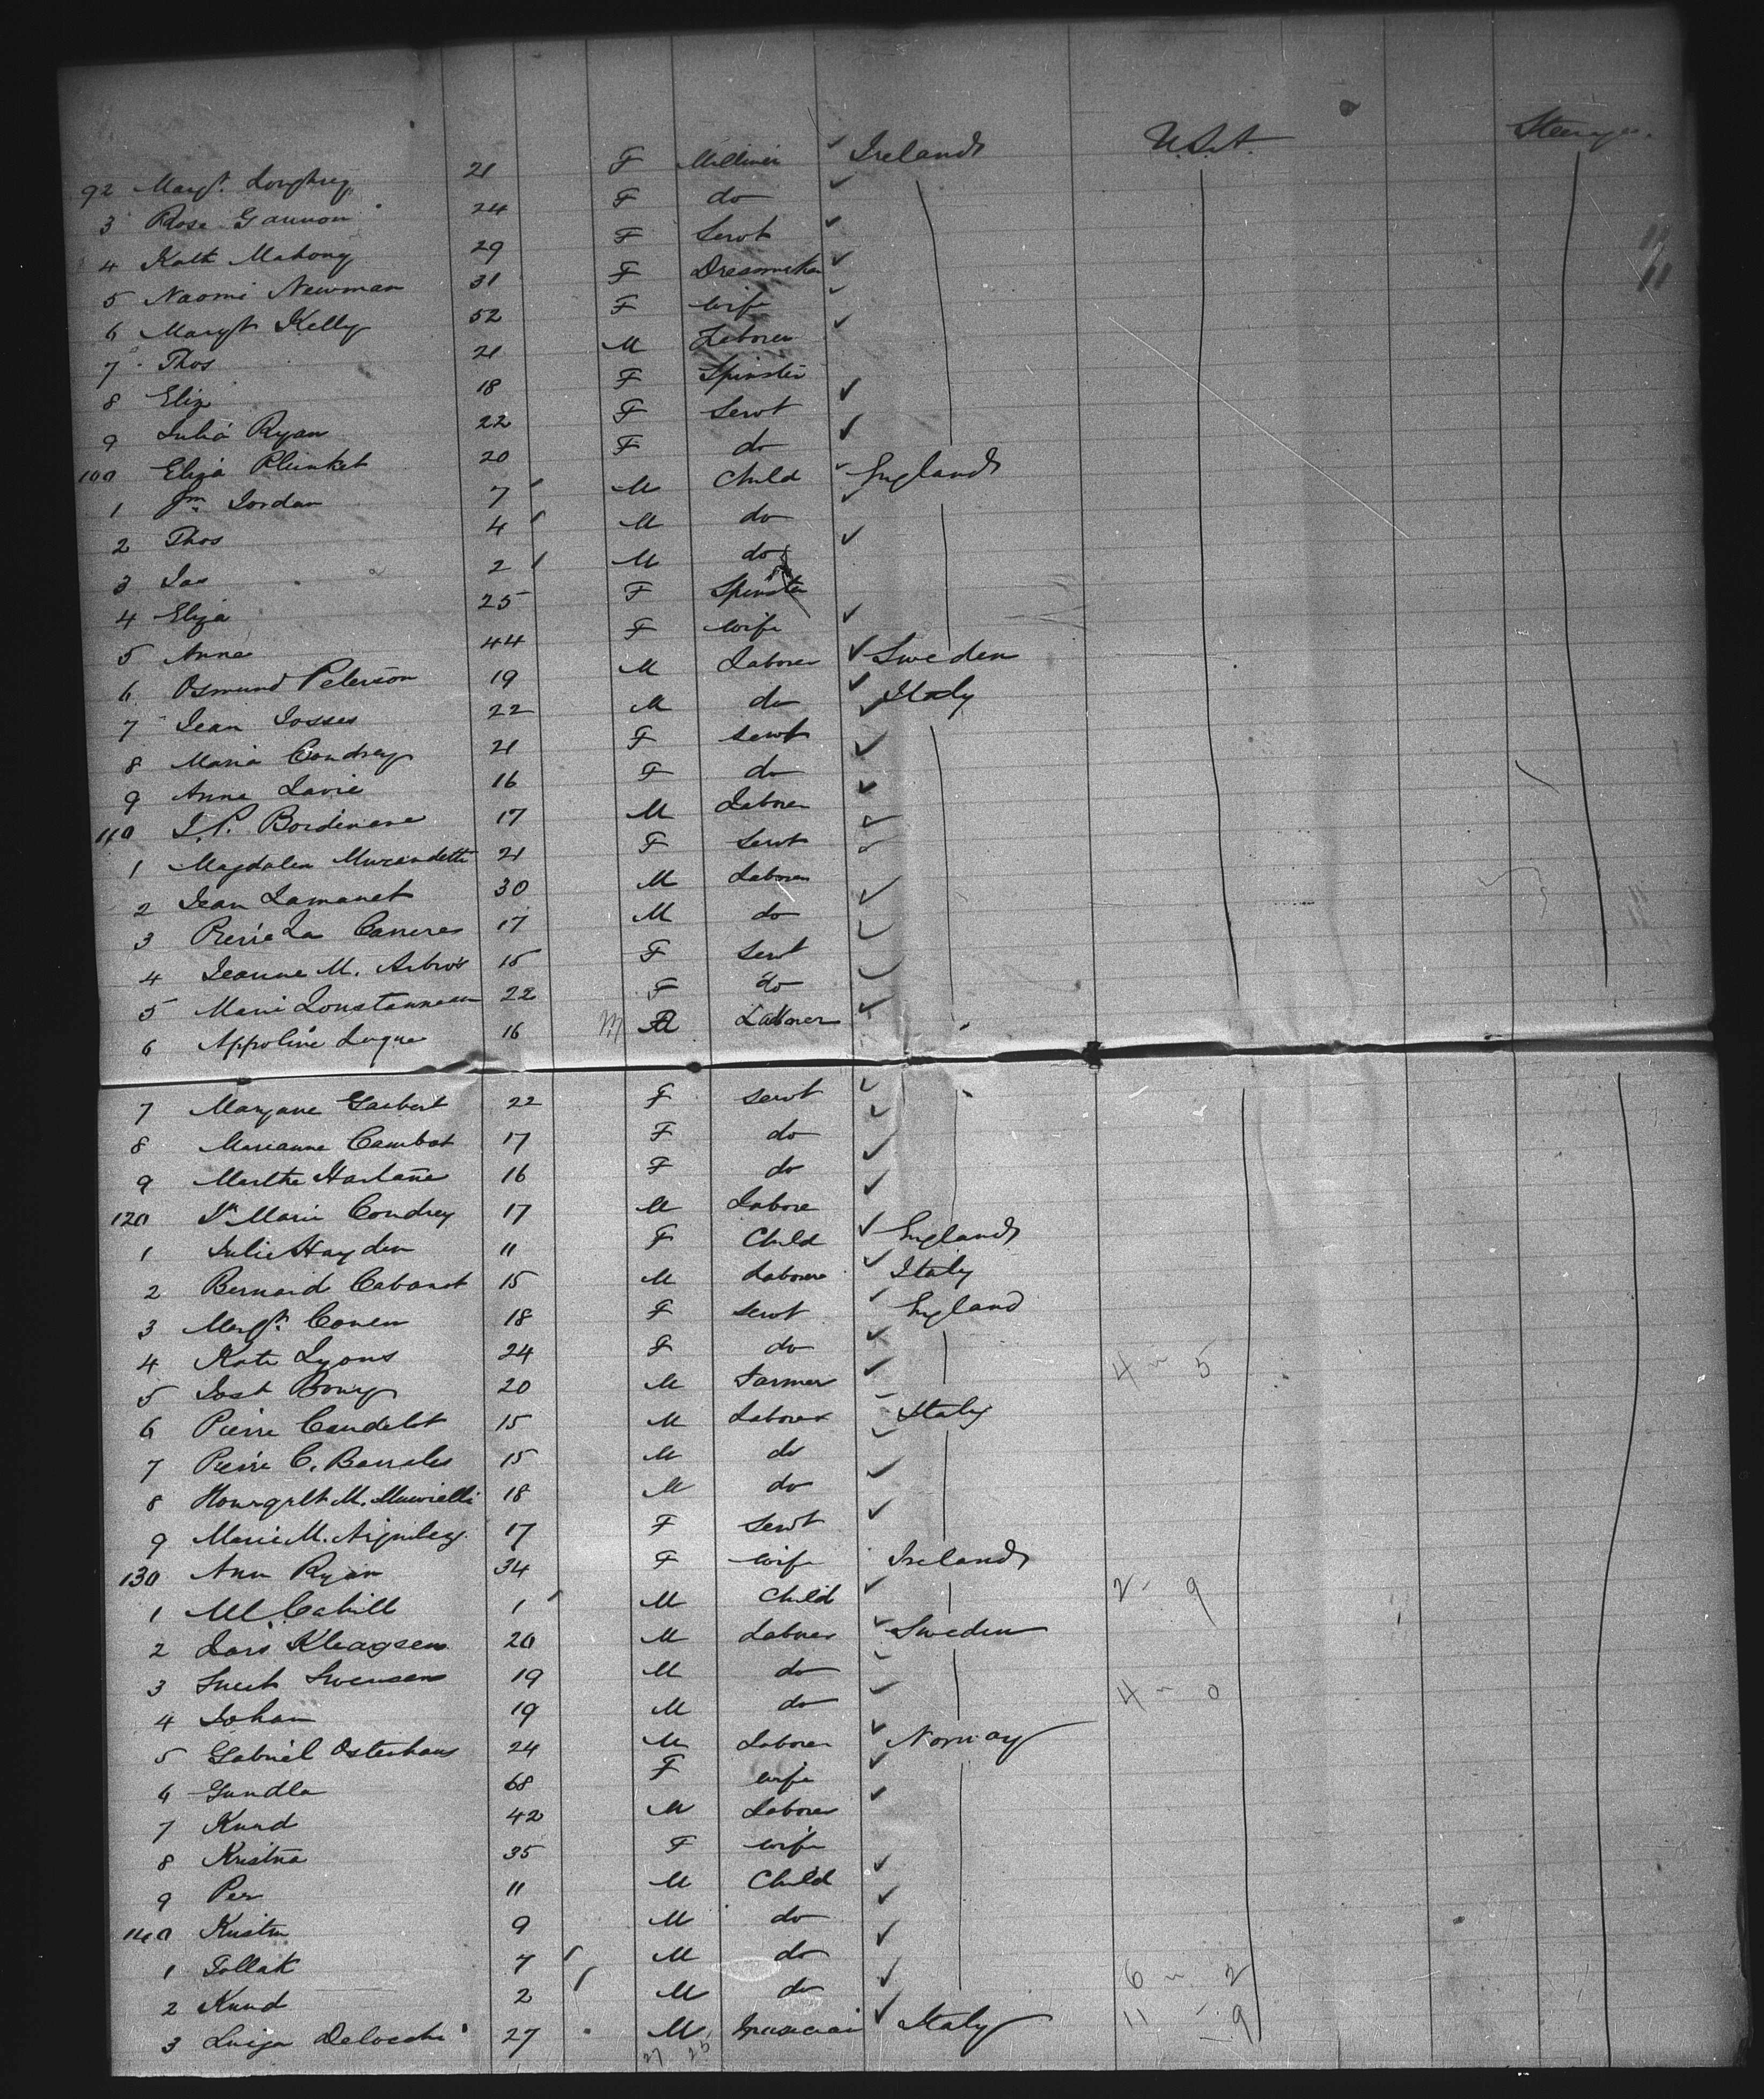 92 Margt. Loughrey 21 F Milliner ✓ Ireland U.S.A. Steerage
3 Rose Gannon 24 F do ✓
4 Kath Mahony 29 F Servt ✓
5 Naomi Newman 31 F Dressmaker ✓
6 Margt Kelly 52 F Wife ✓
7 Thos 21 M Laborer ✓
8 Eliz 18 F Spinster
9 Julia Ryan 22 F Servt ✓
100 Eliza Plunket 20 F do ✓
1 Jordan 7 M Child ✓ England
2 Thos 4 M do ✓
3 Jas 2 M do ✓
4 Eliza 25 F Spinster
5 Anne 44 F Wife ✓
6 Osmund Peterson 19 M Laborer ✓ Sweden
7 Jean Josses 22 M do ✓ Italy
8 Maria Coudrey 21 F Servt ✓
9 Anna Lavie 16 F do ✓
110 J.P. 17 M Laborer ✓
1 Magdalen 21 F Servt ✓
2 Jean Lamanet 30 M Laborer
3 Pierre La Carreres 17 M do ✓
4 Jeanne M. 15 F Servt ✓
5 Marie 22 F do ✓
6 Appoline Lugue 16 M Laborer ✓
7 Maryane Garbert 22 F Servt ✓
8 Marianne Cambot 17 F do ✓
9 Marthe 16 F do ✓
120 Marie Coudrey 17 M Labore ✓
1 Julie Hayden 11 F Child ✓ England
2 Bernard Cabanot 15 M Laborer ✓ Italy
3 Margt. Conen 18 F Servt ✓ England
4 Kate Lyons 24 F do ✓ 4 ~ 5
5 20 M Farmer ✓
6 Pierre Caudelot 15 M Laborer Italy
7 Pierre C. Barrales 15 M do ✓
8 M. 18 M do ✓
9 Marie M. 17 F Servt ✓
130 Ann Ryan 34 F Wife Ireland
1 Ml. Cahill 1 M Child ✓ 2 - 9
2 Lars 20 M Laborer ✓ Sweden
3 Swensen 19 M do ✓
4 Johan 19 M do ✓ 4 ~ 0
5 Gabriel Osterhaus 24 M Laborer ✓ Norway
6 Gundla 68 F Wife ✓
7 Knud 42 M Laborer ✓
8 Kristna 35 F Wife
9 Per 11 M Child ✓
140 9 M do ✓
1 Tollak 7 M do ✓
2 Knud 2 M do ✓ 6 ~ 2
3 Luiga Delocchi 27 M Musician ✓ Italy 11 - 9
27 25